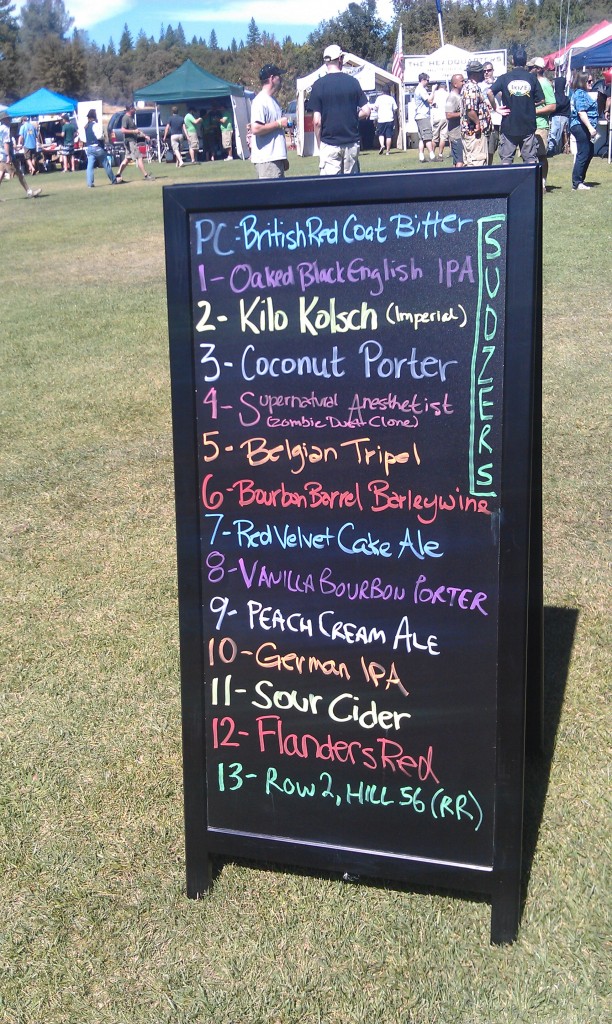 THE HEADQUARTERS
PC: British Red Coat Bitter
SUDZERS
1- Oaked Black English IPA
2- Kilo Kolsch (Imperial)
3- Coconut Porter
4- Supernatural Anesthetist
(Zombie Dust Clone)
5- Belgian Tripel
6- Bourbon Barrel Barleywine
7- Red Velvet Cake Ale
8- VANILLA BOURBON PORTER
9- PEACH CREAM ALE
10- German IPA
11- Sour Cider
12- Flanders Red
13- ROW 2, HILL 56 (RR)